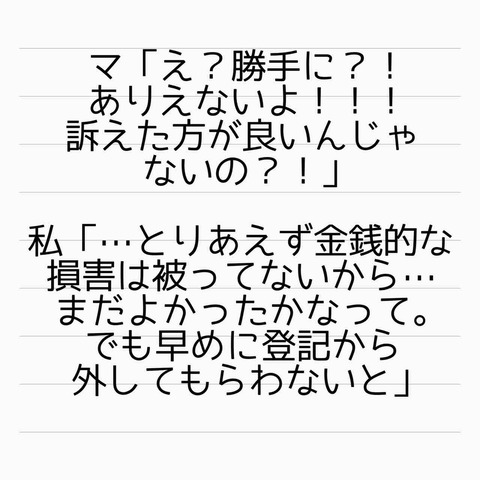 マ「え？勝手に？！
ありえないよ！！！
訴えた方が良いんじゃ
ないの？！」
私「…とりあえず金銭的な
損害は被ってないから…
まだよかったかなって。
でも早めに登記から
外してもらわないと」